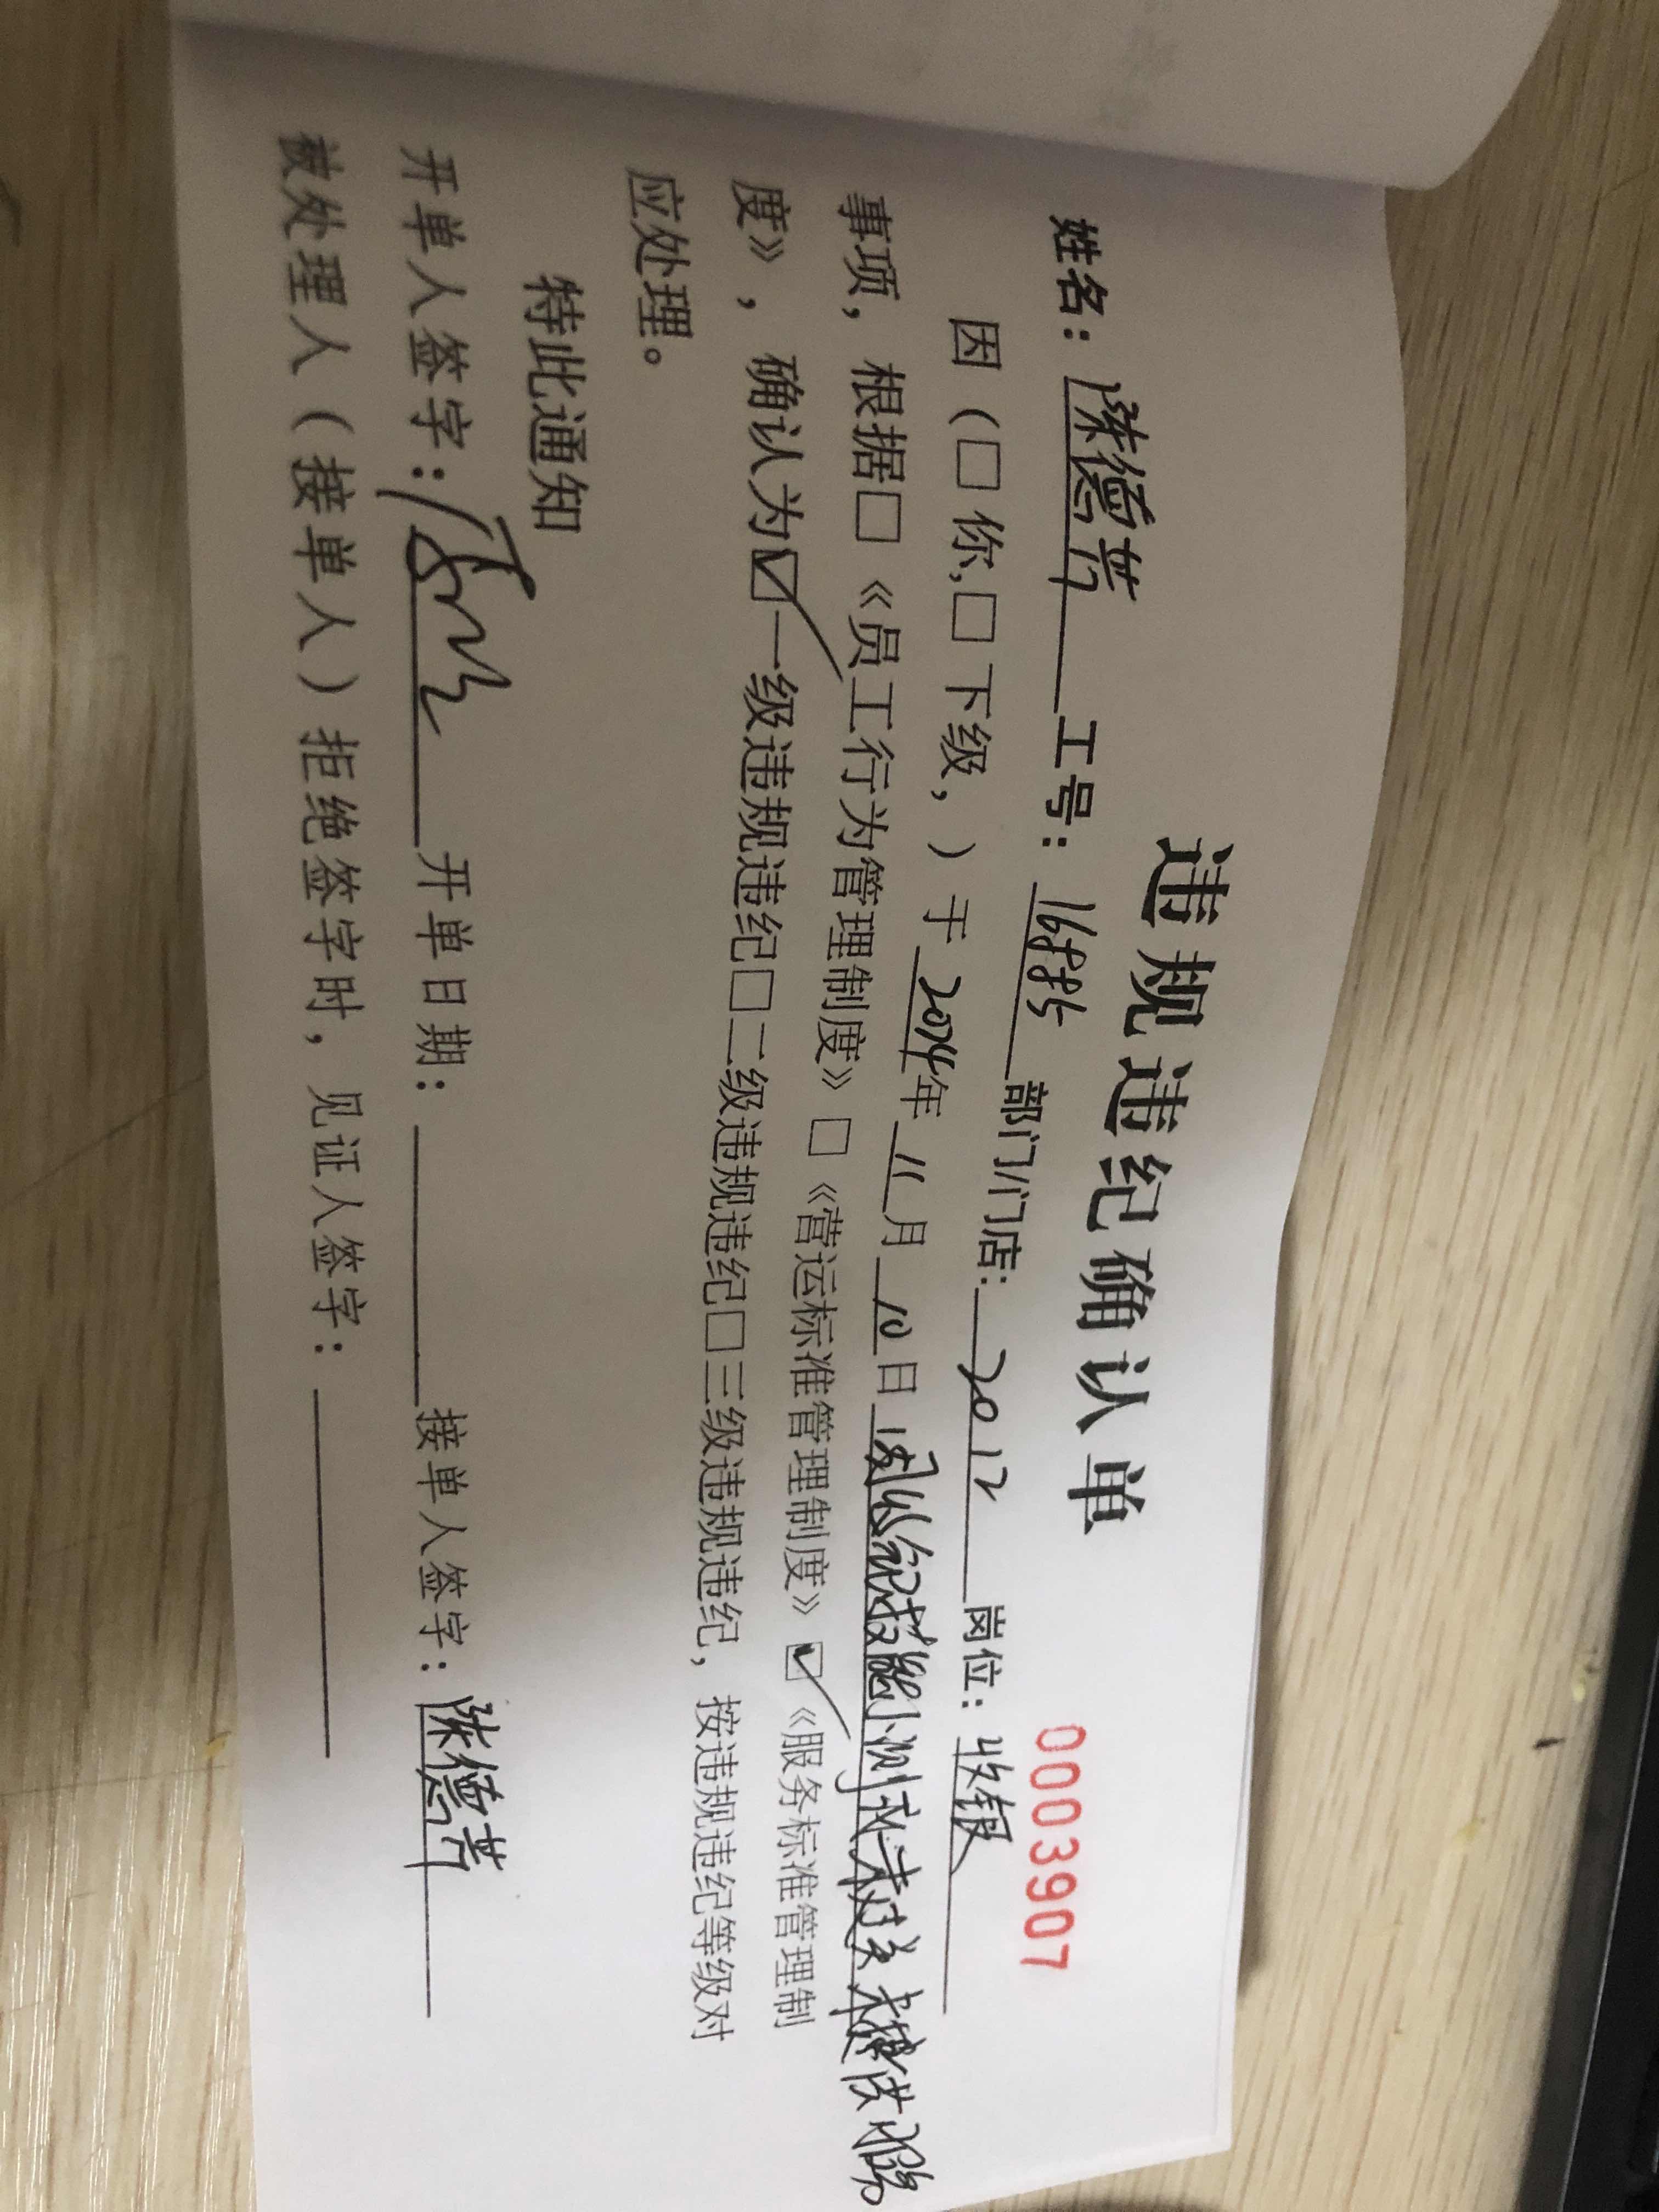 违规违纪确认单
0003907
姓名：陈德芳 工号：16885 部门/门店：2012 岗位：收银
因（□你,□下级，）于2024年11月10日 技能小测试未过关
事项，根据□《员工行为管理制度》□《营运标准管理制度》☑《服务标准管理制
度》，确认为☑一级违规违纪□二级违规违纪□三级违规违纪，按违规违纪等级对
应处理。
特此通知
开单人签字： 开单日期： 接单人签字：陈德芳
被处理人（接单人）拒绝签字时，见证人签字：